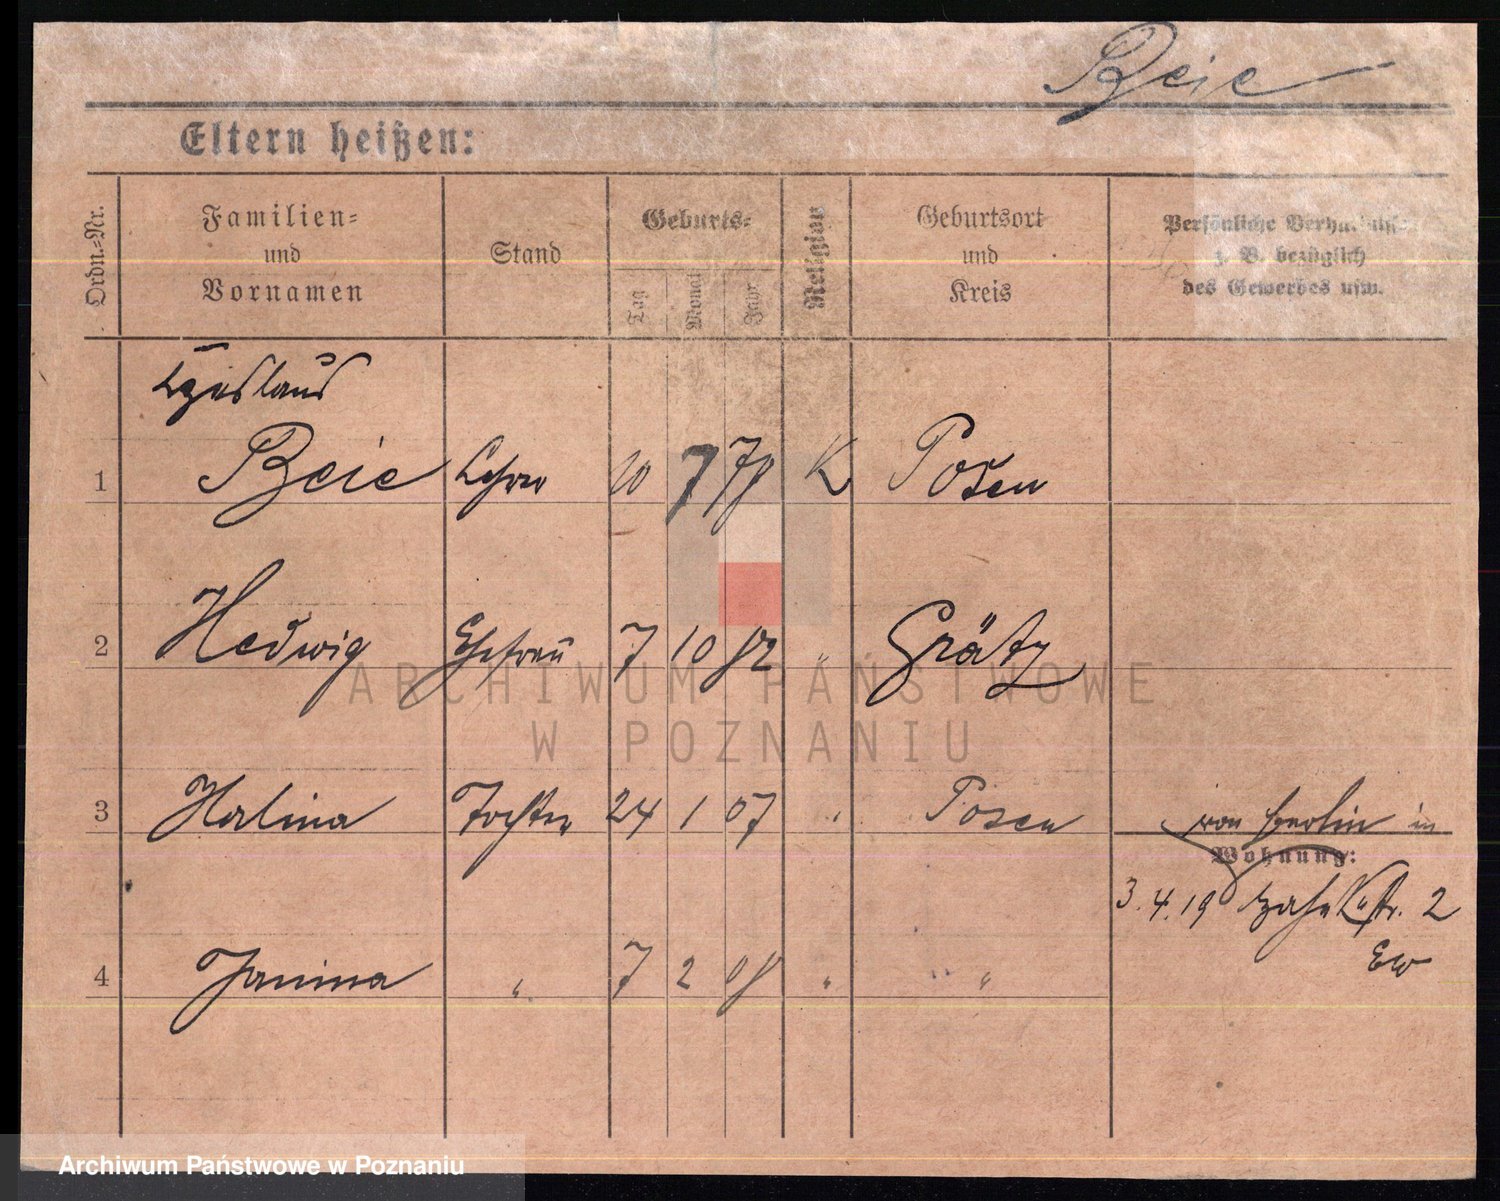 Beie
Eltern heißen:
Ordn.=Nr.
Familien=
und
Vornamen
Stand
Geburts=
Tag
Monat
Jahr
Religion
Geburtsort
und
Kreis
Persönliche Verhältnisse
z. B. bezüglich
des Gewerbes usw.
Czeslaus
1 Beie Lehrer 20 7 78 K Posen
2 Hedwig Ehefrau 7 10 82 " Grätz
3 Halina Tochter 24 1 07 " Posen
von Berlin in
Wohnung:
3.4.19 str. 2
Ew
4 Janina " 7 2 08 " "
ARCHIWUM PAŃSTWOWE
W POZNANIU
Archiwum Państwowe w Poznaniu